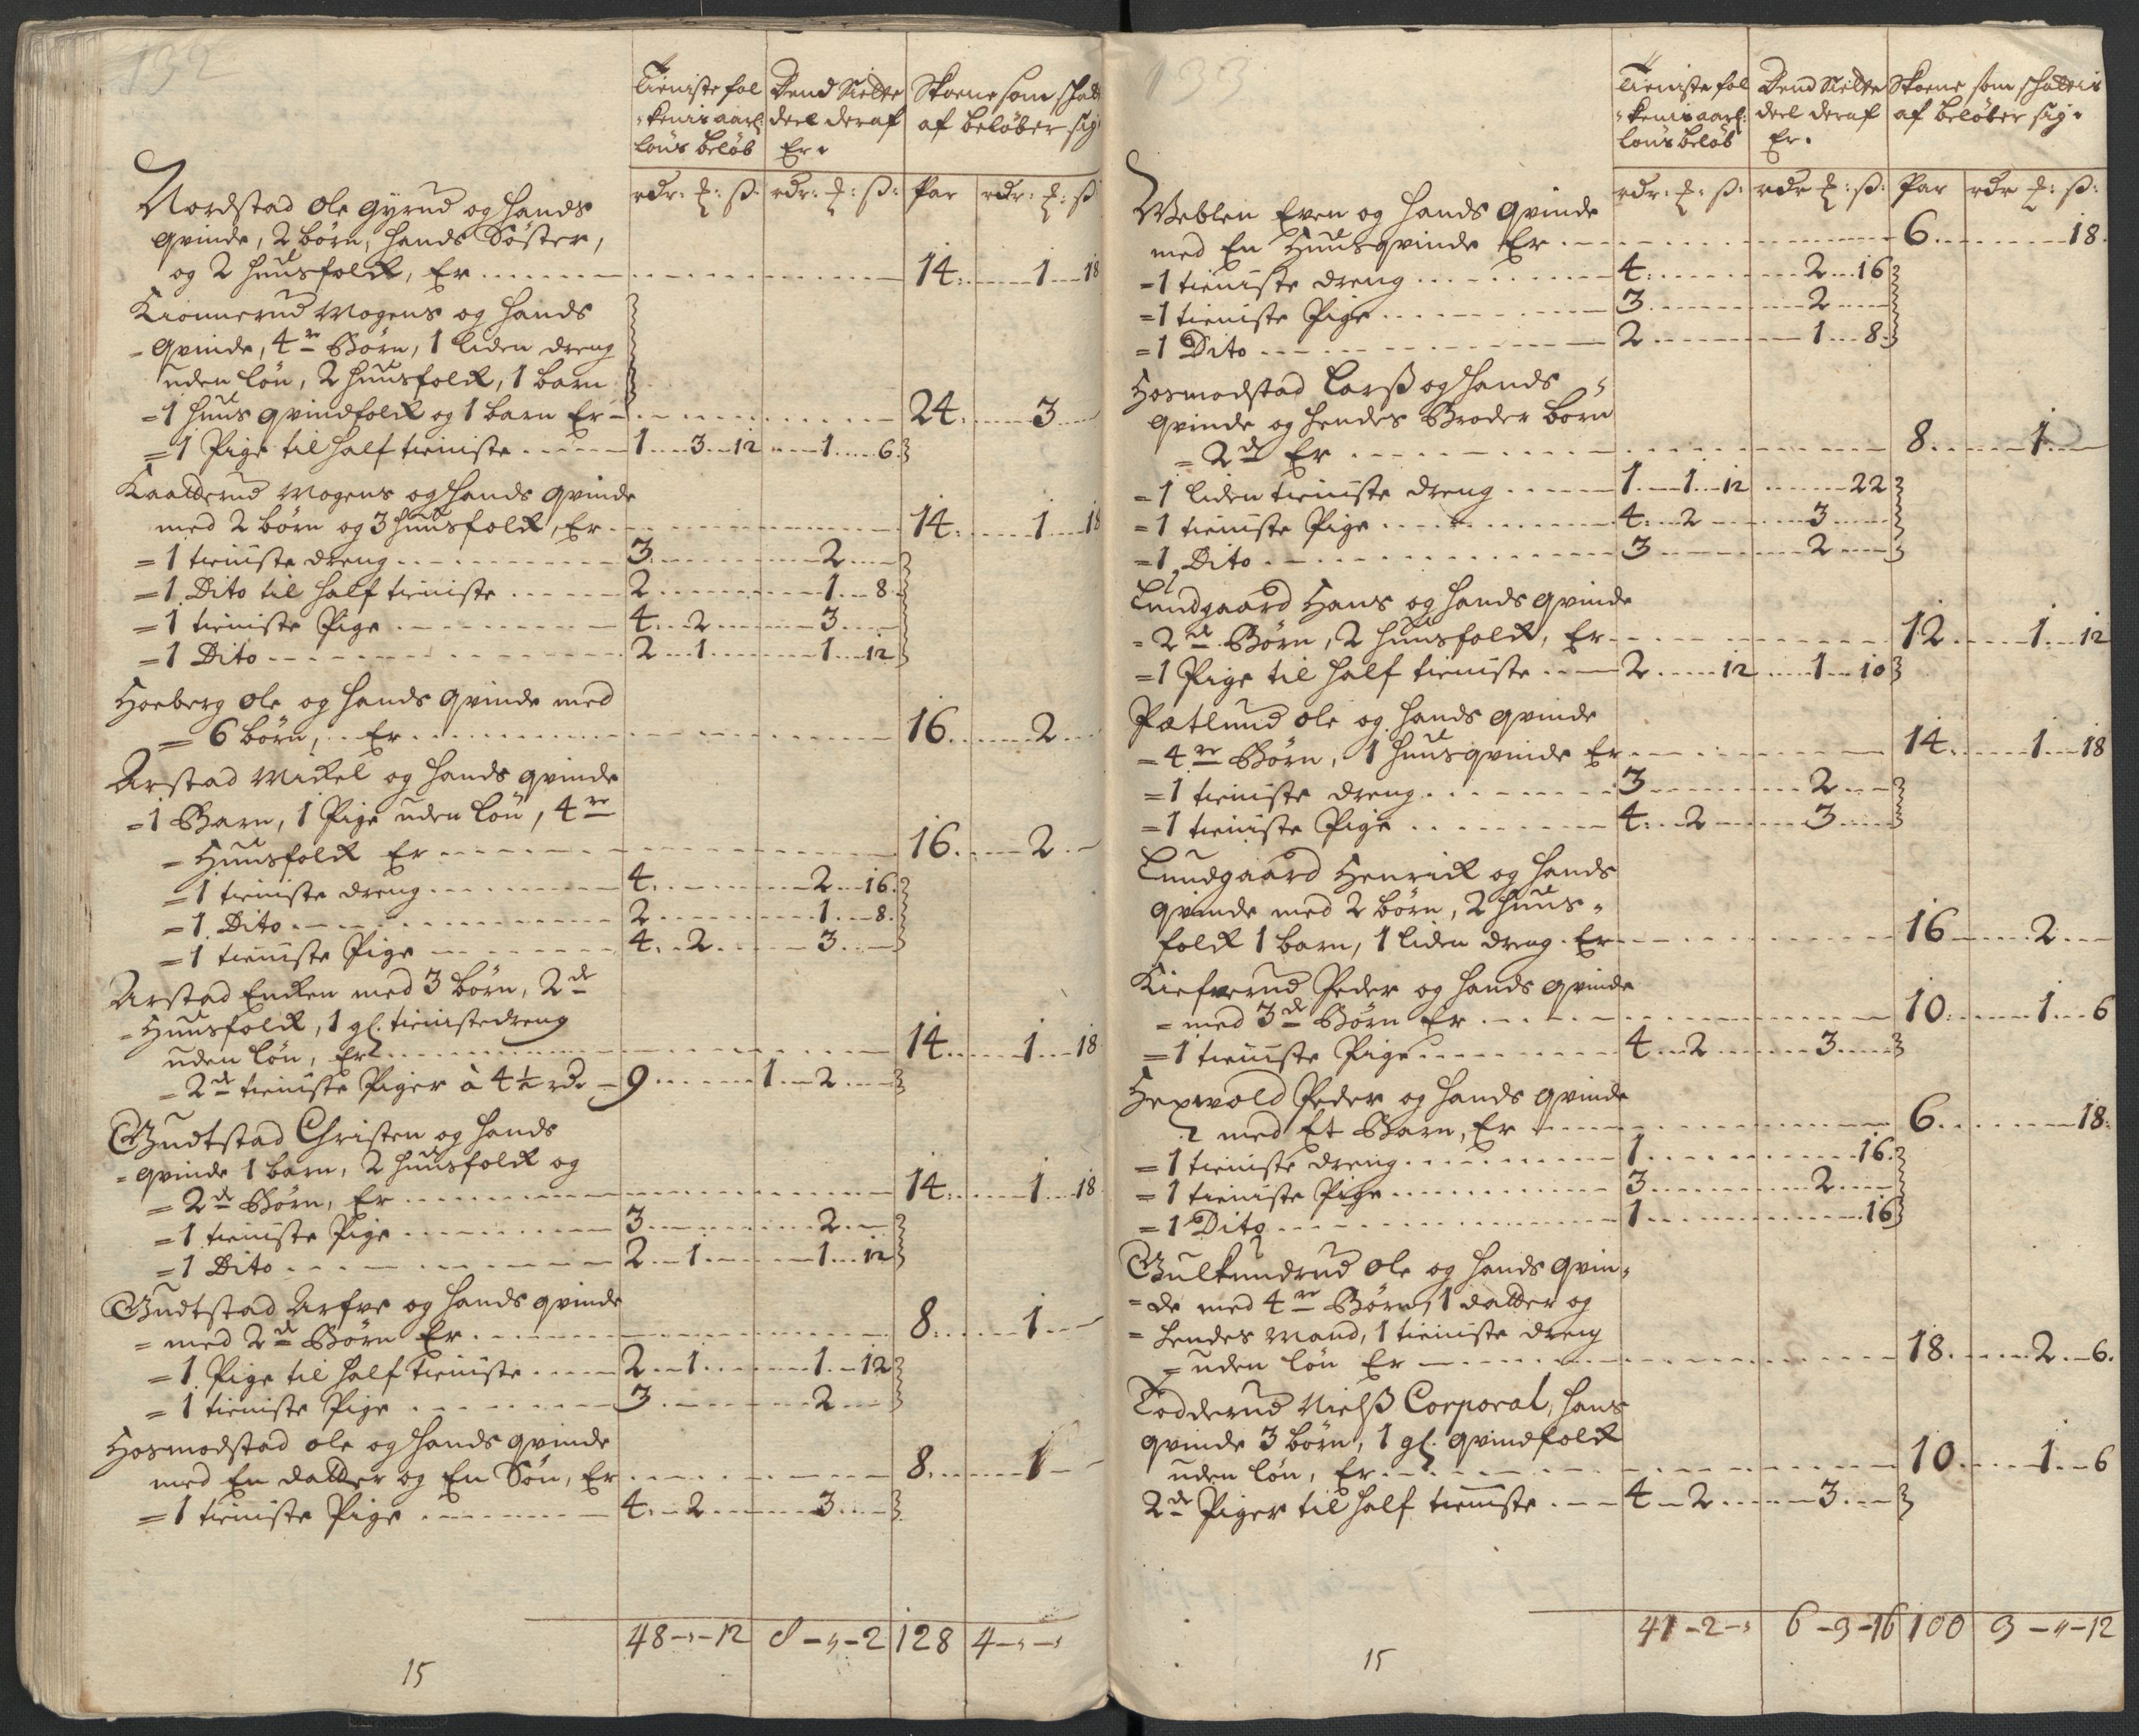 132
Tieniste fol Dend Siette Skoene som skatt
-kenis aarl: deel deraf af beløber sig
Løns beløb Er.
rdr: ₰: ß: rdr: ₰: ß: Par rdr: ₰: ß
Nordstad Ole Gyrud og hands
qvinde, 2 børn, hands Søster,
og 2 huusfolck, Er 14 1 18
Kionnerud Mogens og hands
-qvinde, 4re Børn, 1 liden dreng
uden løn, 2 huusfolck, 1 barn
=1 huus qvindfolck og 1 barn Er 24 3
=1 Pige til half tieniste 1 3 12 1 6
Kaatterud Mogens og hands qvinde
med 2 børn og 3 huusfolck, Er 14 1 18
=1 tieniste dreng 3 2
=1 Dito til half tieniste 2 1 8
=1 tieniste Pige 4 2 3
=1 Dito 2 1 1 12
Hoeberg Ole og hands qvinde med
= 6 børn, Er 16 2
Arstad Mickel og hands qvinde
=1 Barn, 1 Pige uden løn, 4re
= Huusfolck Er 16 2
=1 tieniste dreng 4 2 16
=1 Dito 2 1 8
=1 tieniste Pige 4 2 3
Arstad Encken med 3 børn, 2de
= Huusfolck, 1 gl. tienistedreng
uden løn, Er 14 1 18
= 2de tieniste Piger à 4½ rdr 9 1 2
Gudtstad Christen og hands
= qvinde 1 barn, 2 huusfolck og
= 2de Børn, Er 14 1 18
=1 tieniste Pige 3 2
=1 Dito 2 1 1 12
Gudtstad Arfve og hands qvinde
= med 2de Børn Er 8 1
=1 Pige til half tieniste 2 1 1 12
=1 tieniste Pige 3 2
Hosmodstad Ole og hands qvinde
med En datter og En Søn, Er 8 1
=1 tieniste Pige 4 2 3
48 - " - 12 8 - " - 2 128 4 - " - "
15
133
Tieniste fol Dend Siette Skoene som skattis
-kenis aarl: deel deraf af beløber sig.
Løns beløb Er.
rdr: ₰: ß: rdr ₰: ß: Par rdr ₰: ß:
Weblen Even og hands qvinde
med En Huusqvinde Er 6 18
=1 tieniste dreng 4 2 16
=1 tieniste Pige 3 2
=1 Dito 2 1 8
Hosmodstad Larß og hands
qvinde og hendes Broder born
= 2de Er 8 1
=1 liden tieniste dreng 1 1 12 22
=1 tieniste Pige 4 2 3
=1 Dito 3 2
Lundgaard Hans og hands qvinde
= 2de Børn, 2 huusfolck, Er 12 1 12
=1 Pige til half tieniste 2 12 1 10
Pætlund Ole og hands qvinde
= 4re Børn, 1 huusqvinde Er 14 1 18
=1 tieniste dreng 3 2
=1 tieniste Pige 4 2 3
Lundgaard Henrick og hands
qvinde med 2 børn, 2 huus-
folck 1 barn, 1 liden dreng. Er 16 2
Kiefverud Peder og hands qvinde
= med 3de Børn Er 10 1 6
=1 tieniste Pige 4 2 3
Hexwold Peder og hands qvinde
med Et Barn, Er 6 18
=1 tieniste dreng 1 16
=1 tieniste Pige 3 2
=1 Dito 1 16
Gulkundrud Ole og hands qvin-
= de med 4re Børn, 1 datter og
= hendes Mand, 1 tieniste dreng
= uden løn Er 18 2 6
Todderud Nielß Corporal, hans
qvinde 3 børn, 1 gl. qvindfolck
uden løn, Er 10 1 6
2de Piger til half tieniste 4 2 3
41 - 2 - " 6 - 3 - 16 100 3 - " - 12
15